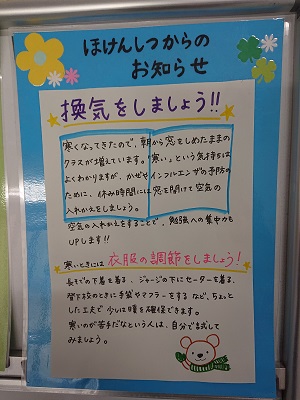 ほけんしつからの
お知らせ
換気をしましょう!!
寒くなってきたので、朝から窓をしめたままの
クラスが増えています。「寒い」という気持ちは
よくわかりますが、かぜやインフルエンザの予防の
ために、休み時間には窓を開けて空気の
入れかえをしましょう。
空気の入れかえをすることで、勉強への集中力も
UPします!!
寒いときには衣服の調節をしましょう!
長そでの下着を着る、ジャージの下にセーターを着る、
登下校のときに手袋やマフラーをする など、ちょっと
した工夫で少しは暖を確保できます。
寒いのが苦手だなという人は、自分で試して
みましょう。